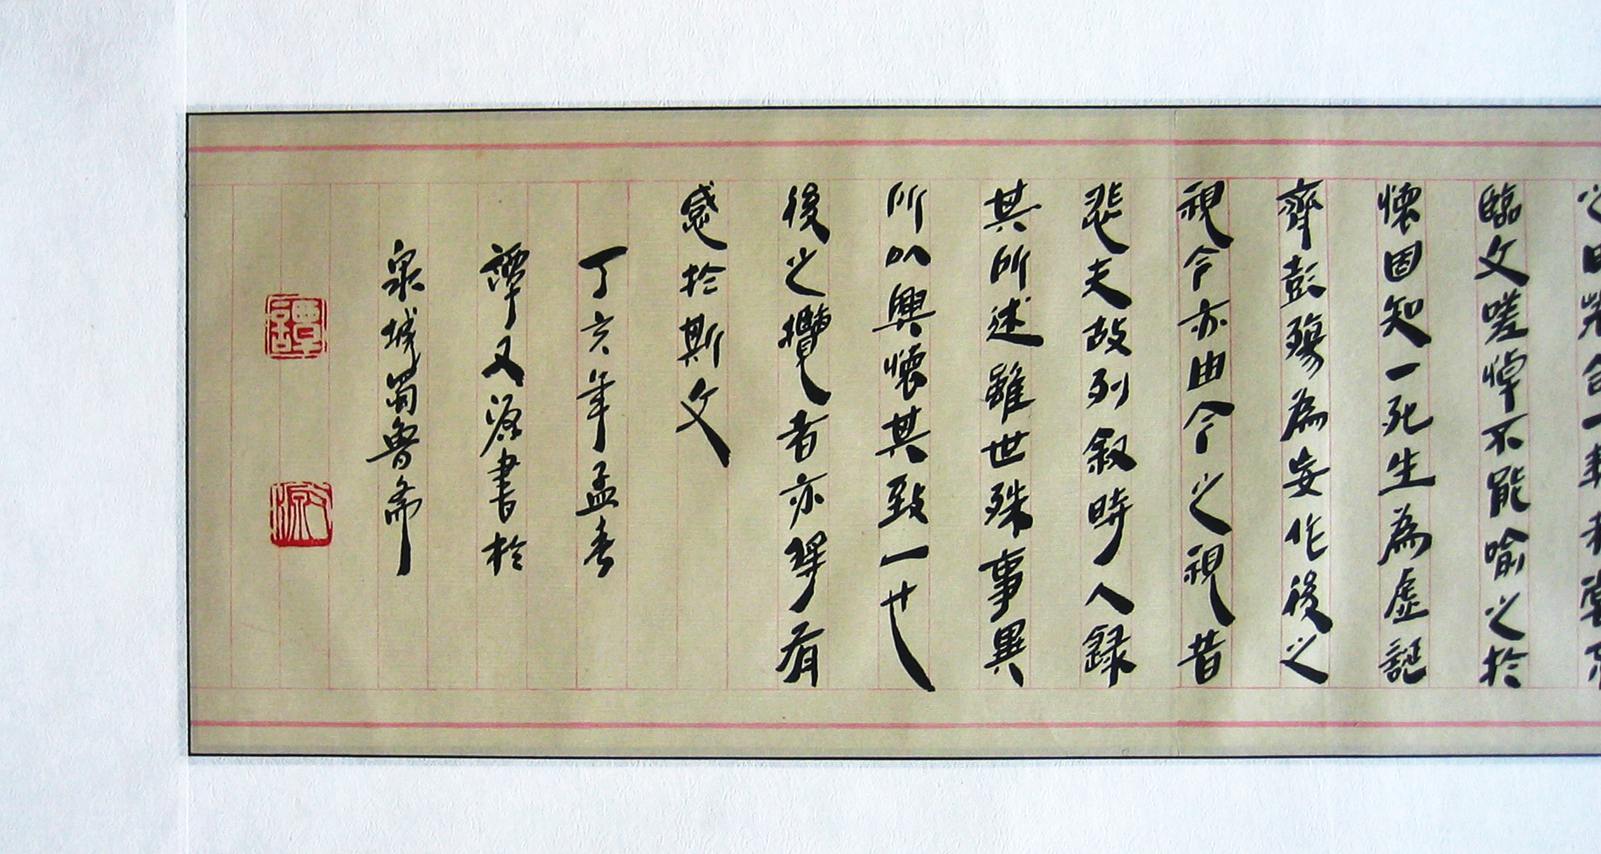 臨文嗟悼不能喻之於
懷固知一死生為虛誕
齊彭殤為妄作後之
視今亦由今之視昔
悲夫故列叙時人録
其所述雖世殊事異
所以興懷其致一也
後之攬者亦將有
感於斯文
丁亥年孟春
譚又源書於
泉城蜀魯齋
譚
又源